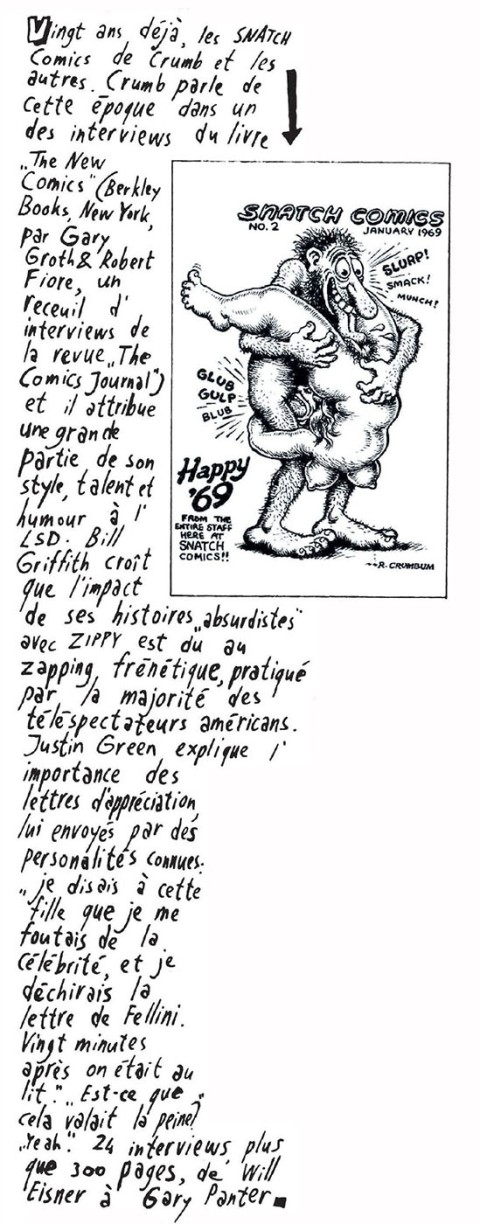 Vingt ans déjà, les SNATCH
Comics de Crumb et les
autres. Crumb parle de
cette époque dans un
des interviews du livre
„The New
Comics" (Berkley
Books, New York,
par Gary
Groth & Robert
Fiore, un
receuil d'
interviews de
la revue „The
Comics Journal")
et il attribue
une grande
partie de son
style, talent et
humour à l'
LSD. Bill
Griffith croît
que l'impact
de ses histoires „absurdistes"
avec ZIPPY est dû au
zapping, frénétique, pratiqué
par la majorité des
téléspectateurs américans.
Justin Green explique l'
importance des
lettres d'appréciation,
lui envoyés par des
personalités connues.
„je disais à cette
fille que je me
foutais de la
célébrité, et je
déchirais la
lettre de Fellini.
Vingt minutes
après on était au
lit." „Est-ce que
cela valait la peine?"
„Yeah". 24 interviews plus
que 300 pages, de Will
Eisner à Gary Panter
SNATCH COMICS
NO. 2
JANUARY 1969
SLURP!
SMACK!
MUNCH!
GLUB
GULP
BLUB
Happy
'69
FROM THE
ENTIRE STAFF
HERE AT
SNATCH
COMICS!!
R. CRUMBUM